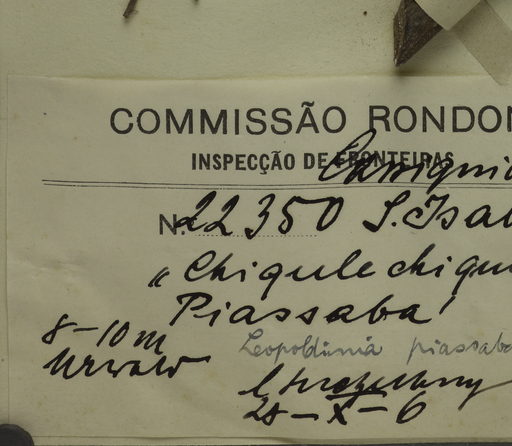 COMMISSÃO RONDON
INSPECÇÃO DE FRONTEIRAS
N. 22350 S. Isab
"Chiqulechiqui
Piassaba"
8-10 m
Urwald
Leopoldinia piassaba
28-X-6